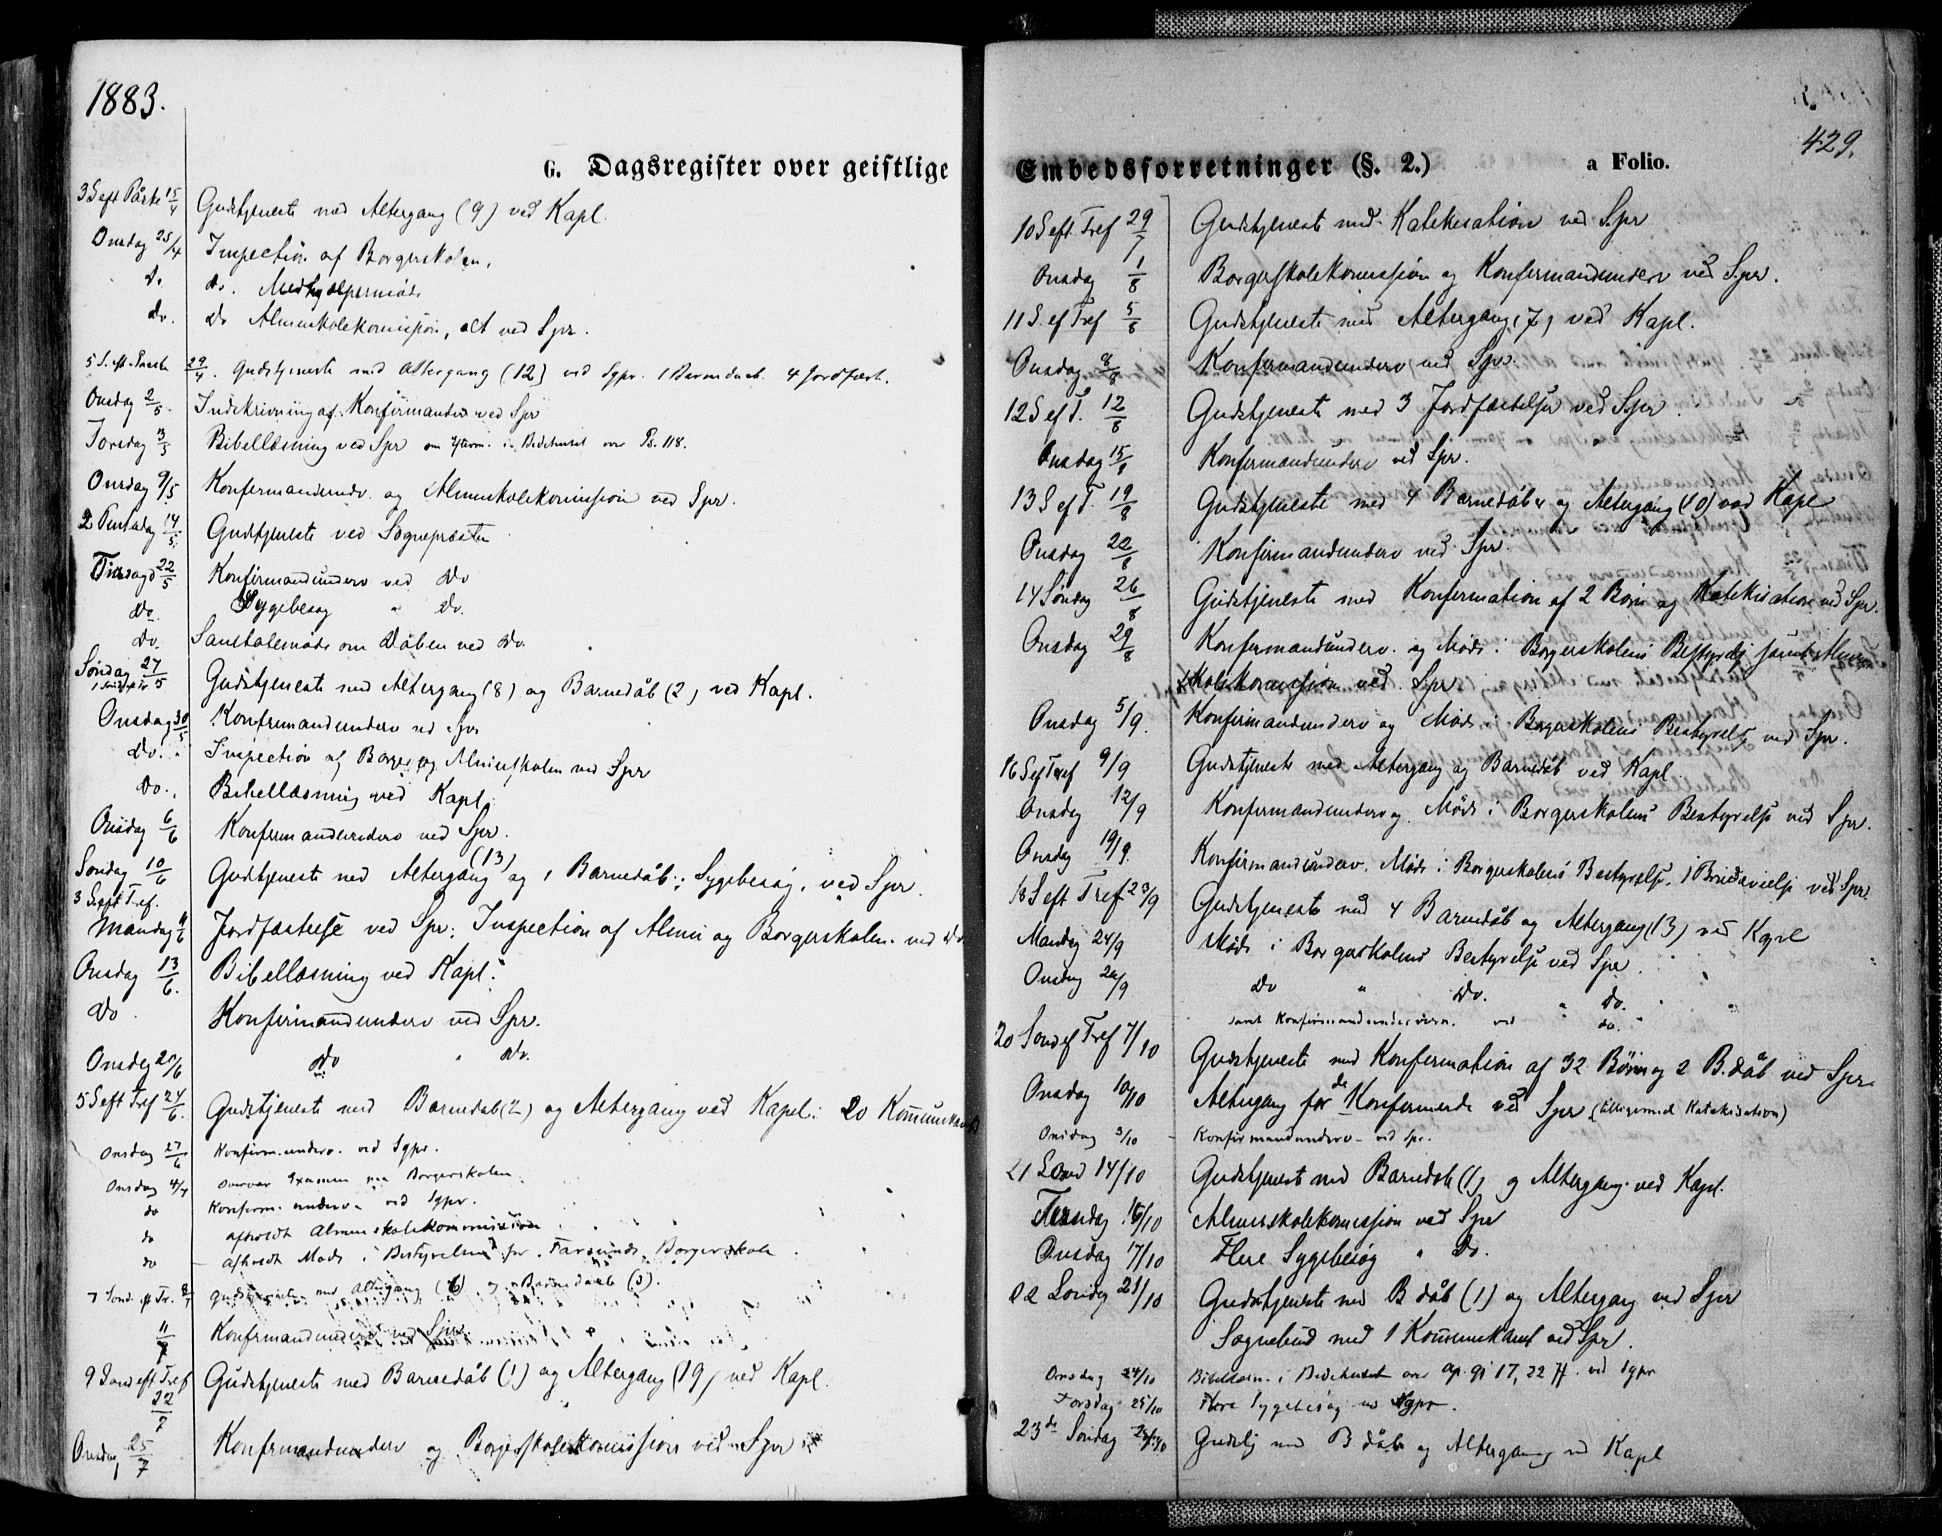 1883.
G. Dagsregister over geistlige
3 S eft Påske 15/4 Gudstjeneste med Altergang (9) ved Kapl.
Onsdag 25/4 Inspection af Borgerskolen.
Do. do. Medhjælpermøde
do. do Almueskolekomission, alt ved Spr.
5 S. eft. Paaske 29/4. Gudstjeneste med Altergang (12) ved Sgpr. 1 Barnedaab. 4 Jordfæst.
Onsdag 2/5. Indskrivning af Konfirmander ved Spr
Torsdag 3/5 Bibellæsning ved Spr om i Bedehuset over Ps. 118.
Onsdag 9/5 Konfirmandunderv. og Almueskolekomission ved Spr.
2 Pintsedag 14/5. Gudstjeneste ved Sognepræsten
Tirsdag d 22/5 Konfirmandunderv ved Do
Do. Sygebesøg " Do.
Do. Samtalemøde om Dåben ved Do.
Søndag 27/5 Gudstjeneste med Altergang (8) og Barnedåb (2) ved Kapl.
1 Sønd ef Tr.
Onsdag 30/5 Konfirmandunderv ved Spr
Do. Inspection af Borger og Almueskolen ved Spr
Do. Bibellæsning ved Kapl.
Onsdag 6/6 Konfirmandunderv ved Spr.
Søndag 10/6 Gudtjeneste med Altergang (13) og 1 Barnedåb; Sygebesøg, ved Spr.
3 S eft Tref.
Mandag 11/6 Jordfæstelse ved Spr; Inspection af Almue og Borgerskolen ved Do
Onsdag 13/6. Bibellæsning ved Kapl.
Do Konfirmandunderv ved Spr.
Onsdag 20/6 Do " Do.
5 S eft Tref 24/6. Gudstjeneste med Barnedåb (2) og Altergang ved Kapl: 20 Komunikanter
Onsdag 27/6 Konfirm.underv. ved Sgpr.
Onsdag 4/7 overvar Examen paa Borgerskolen
do Konfirm. underv. ved Sgpr.
do afholdt Almueskolekommission
do afholdt Møde i Bestyrelsen for Farsunds Borgerskole
7 Sønd. ef Tr. 8/7 gudstjeneste med Altergang (6) og Barnedåb (3).
11/7 Konfirmandunderv ved Spr
9 Sønd eft Tref 22/7 Gudstjeneste med Barnedåb (1) og Altergang (19) ved Kapl.
Onsdag 25/7 Konfirmandunderv og Borgerskolekomission ved Spr
429.
Embedsforretninger (§. 2.) a Folio.
10 S eft. Tref 29/7 Gudstjeneste med Katekisation ved Spr
Onsdag 1/8 Borgerskolekomission og Konfirmandunderv ved Spr.
11 S. ef Tref 5/8 Gudstjeneste med Altergang (7) ved Kapl.
Onsdag 8/8 Konfirmandunderv ved Spr.
12 S ef T. 12/8 Gudstjeneste med 3 Jordfæstelser ved Spr.
Onsdag 15/8 Konfirmandunderv ved Spr.
13 S ef T. 19/8 Gudstjeneste med 4 Barnedåb og Altergang (10) ved Kapl
Onsdag 22/8 Konfirmandunderv ved Spr.
14 Søndag 26/8 Gudstjeneste med Konfirmation af 2 Børn og Katekisation ved Spr.
Onsdag 29/8 Konfirmandunderv. og Møde i Borgerskolens Bestyrelse samt Almue
skolekomission ved Spr
Onsdag 5/9. Konfirmandunderv og Møde i Borgerskolens Bestyrelse ved Spr.
16 S ef Tref 9/9 Gudstjeneste med Altergang og Barnedåb ved Kapl
Onsdag 12/9 Konfirmandunderv og Møde i Borgerskolens Bestyrelse ved Spr.
Onsdag 19/9. Konfirmandunderv. Møde i Borgerskolens Bestyrelse. 1 Brudevielse ved Spr
18 S eft Tref 23/9 Gudstjeneste med 4 Barnedåb og Altergang (13) ved Kapl
Mandag 24/9 Møde i Borgerskolens Bestyrelse ved Spr.
Onsdag 26/9 Do " Do. " Do.
samt Konfirmandundervisn. ved " do.
20 Sønd ef Tref 7/10 Gudstjeneste med Konfirmation af 32 Børn og 2 B. dåb ved Spr
Onsdag 10/10 Altergang for de Konfirmerede ved Spr (tilligemed Katekisation)
Onsdag 3/10 Konfirmandunderv. ved Spr.
21 Sønd 14/10 Gudstjeneste med Barnedåb (1) og Altergang ved Kapl.
Tirsdag 16/10 Almueskolekomission ved Spr
Onsdag 17/10 Flere Sygebesøg " Do.
22 Søndag 21/10 Gudstjeneste med B dåb (1) og Altergang ved Spr
Sognebud med 1 Komunikant ved Spr.
Onsdag 24/10 Bibellæsn. i Bedehuset over Ap. gj 17, 22 ff. ved Sgpr
Torsdag 25/10 Flere Sygebesøg ved Sgpr.
23de Søndag 28/10 Gudstj med B dåb og Altergang ved Kapl